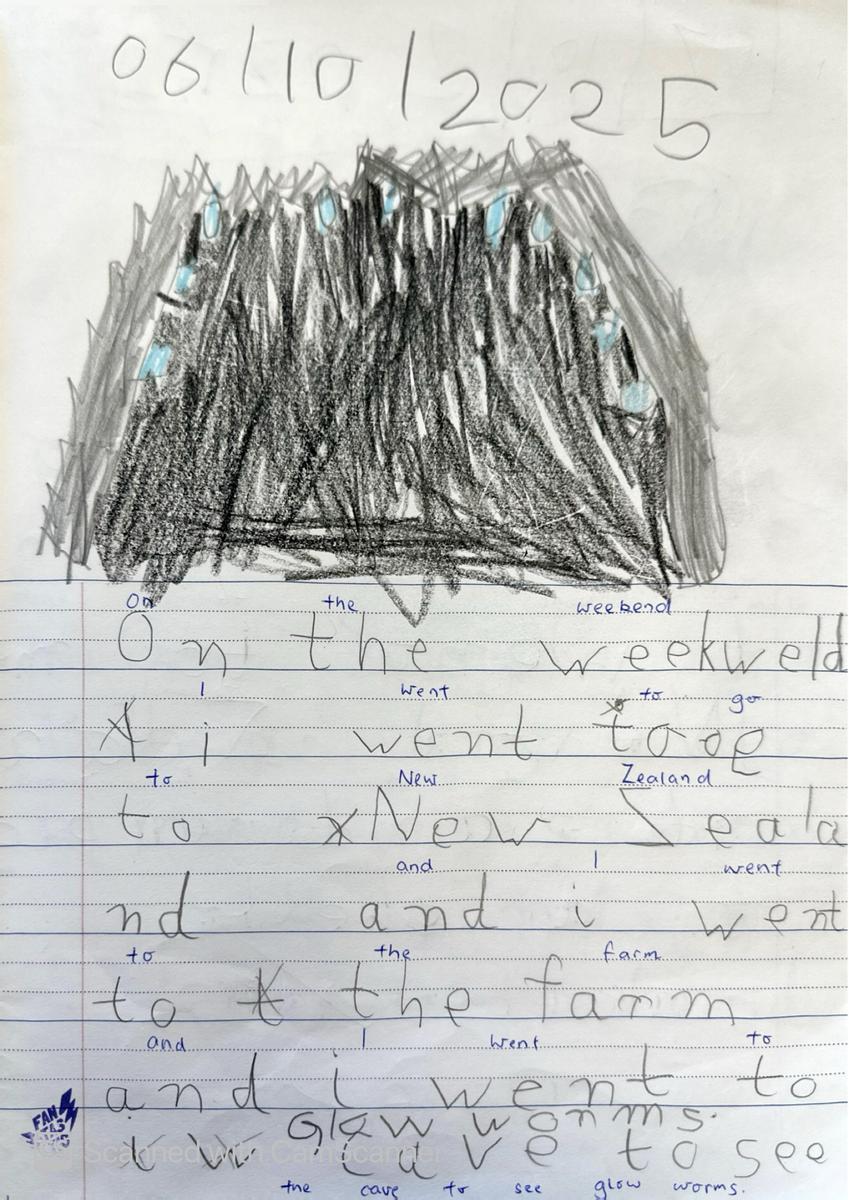 06/10/2025
On the weekend
On the weekweld
I went to go
i went tooe
to New Zealand
to x New Zeala
and I went
nd and i went
to the farm
to t the farm
and I went to
and i went to
Glow worms.
x w cave to see
the cave to see glow worms.
Scanned with CamScanner